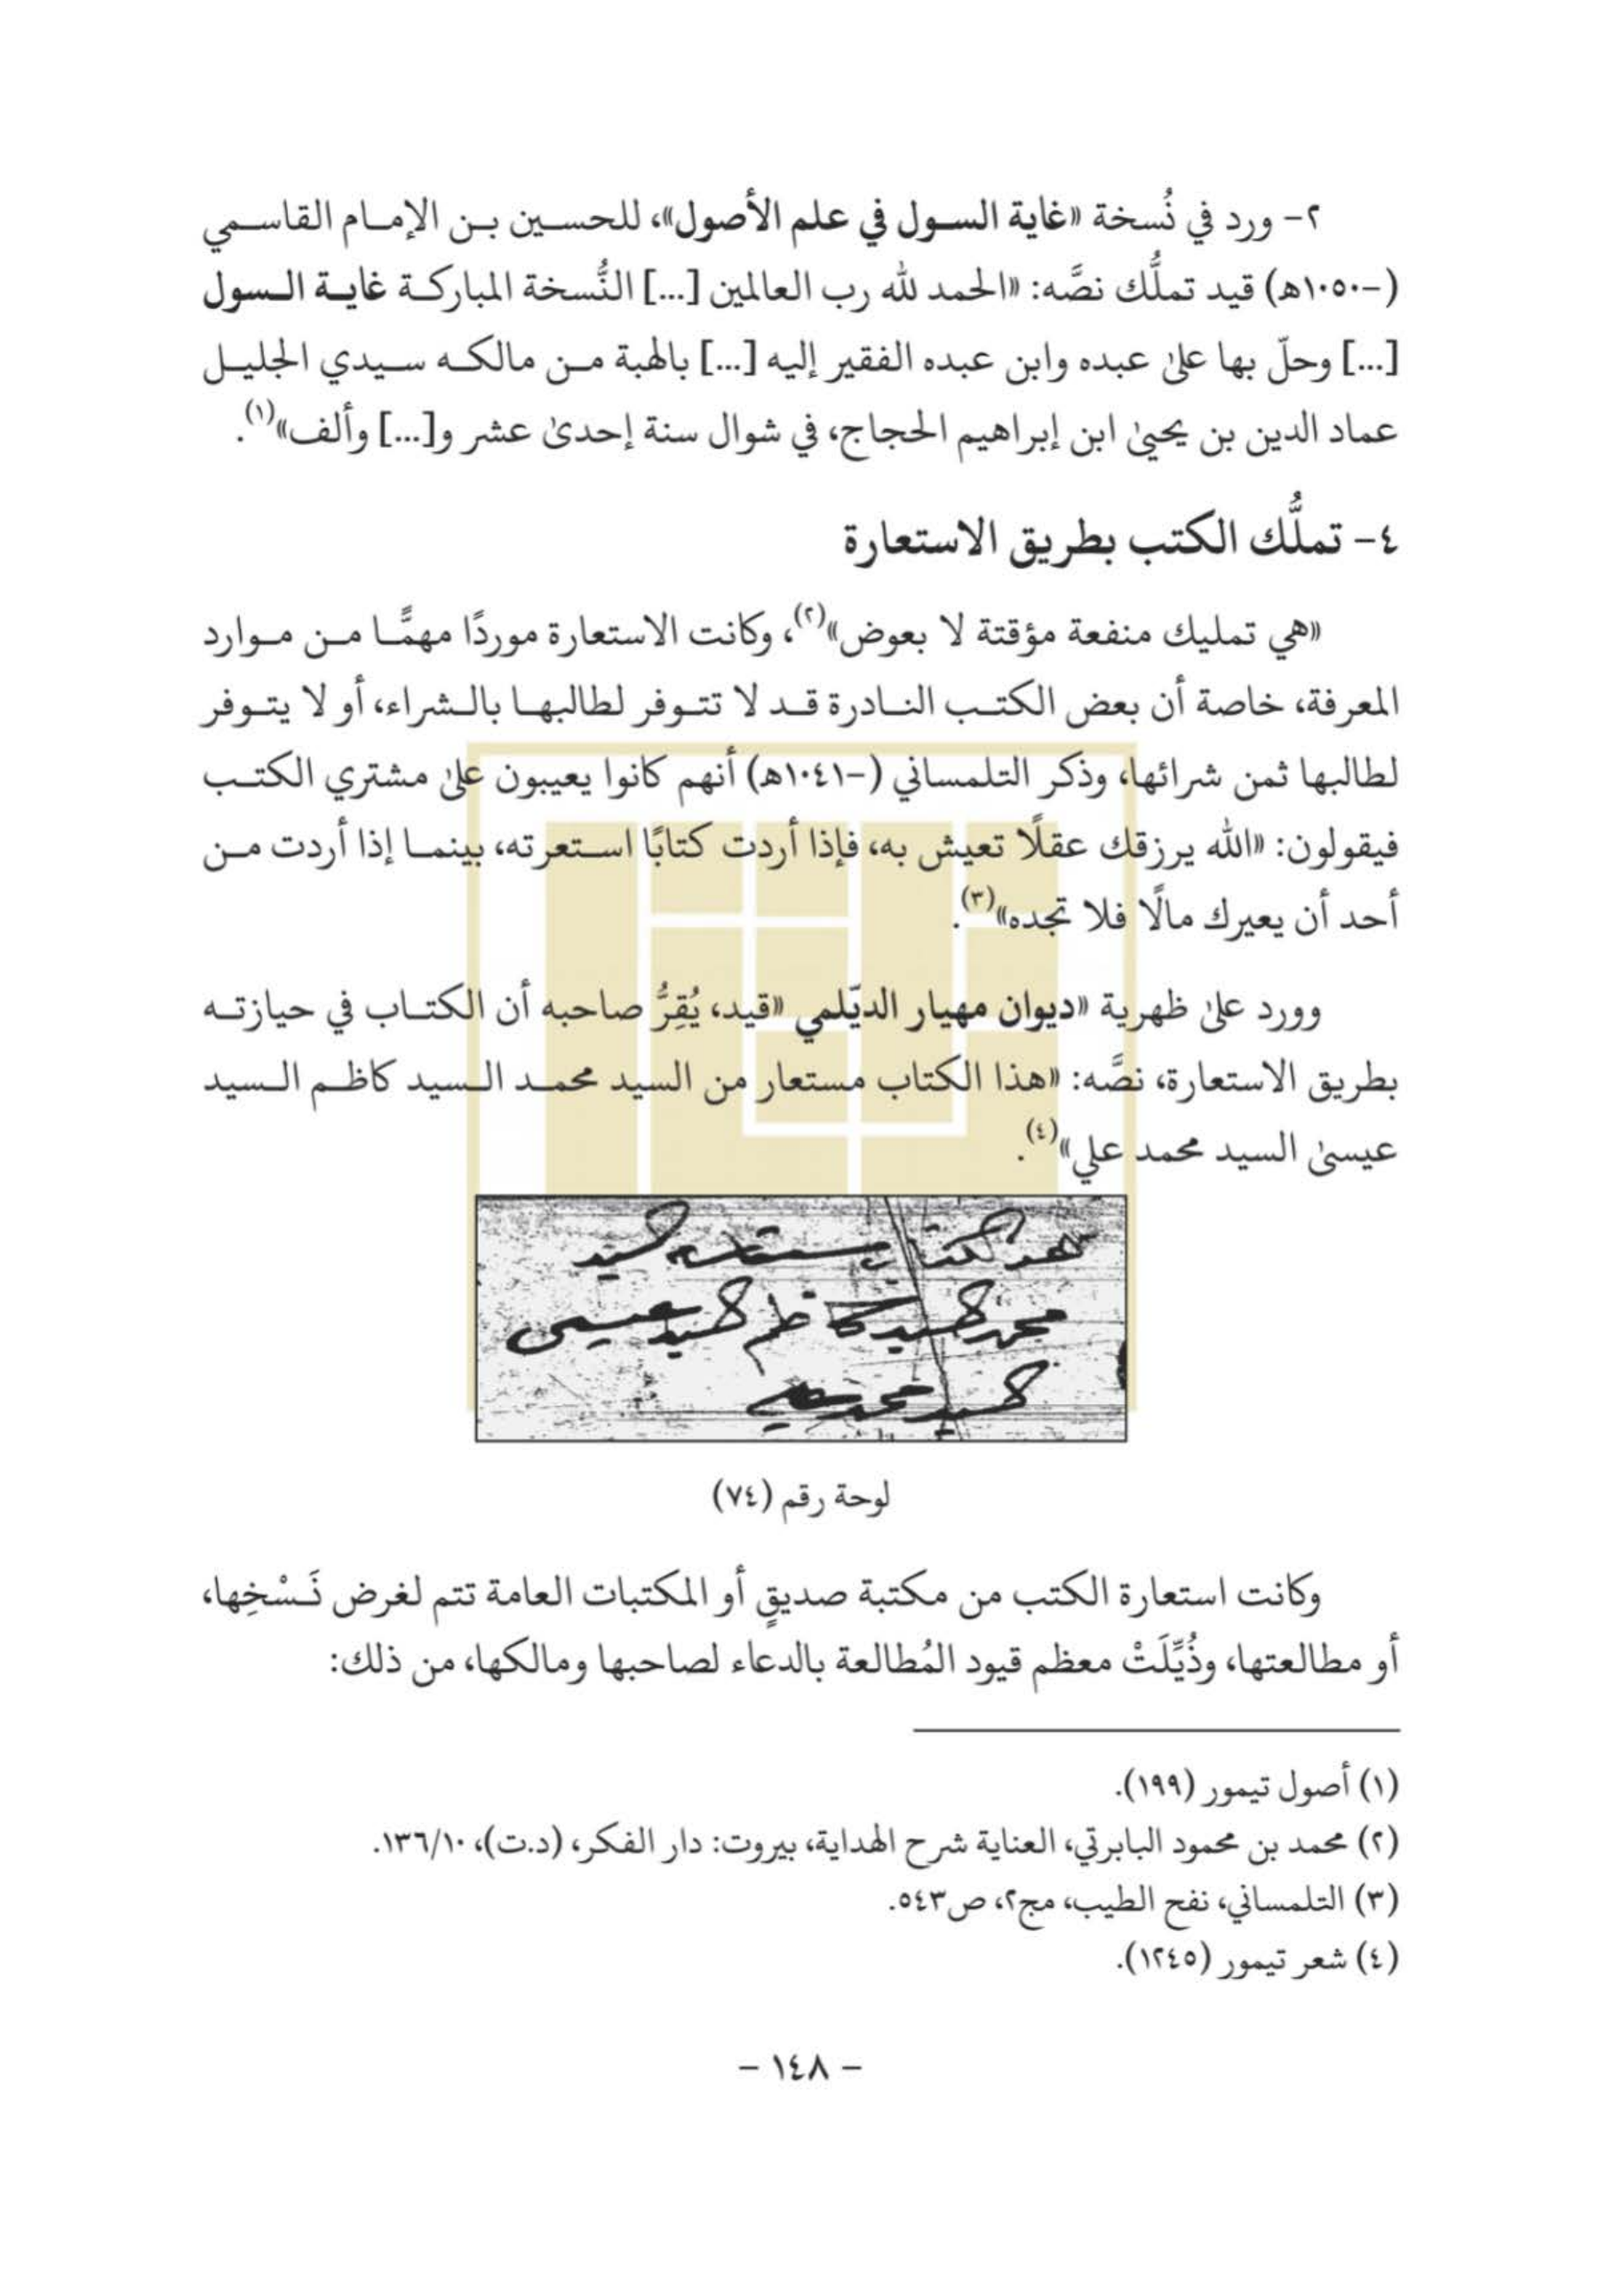 ٢- ورد في نُسخة «غاية السول في علم الأصول»، للحسين بن الإمام القاسمي
(-١٠٥٠هـ) قيد تملُّك نصَّه: «الحمد لله رب العالمين [...] النُّسخة المباركة غاية السول
[...] وحلّ بها علىٰ عبده وابن عبده الفقير إليه [...] بالهبة من مالكه سيدي الجليل
عماد الدين بن يحيىٰ ابن إبراهيم الحجاج، في شوال سنة إحدىٰ عشر و[...] وألف»(١).
٤- تملُّك الكتب بطريق الاستعارة
«هي تمليك منفعة مؤقتة لا بعوض»(٢)، وكانت الاستعارة موردًا مهمًّا من موارد
المعرفة، خاصة أن بعض الكتب النادرة قد لا تتوفر لطالبها بالشراء، أو لا يتوفر
لطالبها ثمن شرائها، وذكر التلمساني (-١٠٤١هـ) أنهم كانوا يعيبون علىٰ مشتري الكتب
فيقولون: «الله يرزقك عقلًا تعيش به، فإذا أردت كتابًا استعرته، بينما إذا أردت من
أحد أن يعيرك مالًا فلا تجده»(٣).
وورد علىٰ ظهرية «ديوان مهيار الديّلمي «قيد، يُقِرُّ صاحبه أن الكتاب في حيازته
بطريق الاستعارة، نصَّه: «هذا الكتاب مستعار من السيد محمد السيد كاظم السيد
عيسىٰ السيد محمد علي»(٤).
هذا الكتاب مستعار من السيد
محمد السيد كاظم السيد عيسى
السيد محمد علي
لوحة رقم (٧٤)
وكانت استعارة الكتب من مكتبة صديقٍ أو المكتبات العامة تتم لغرض نَسْخِها،
أو مطالعتها، وذُيِّلَتْ معظم قيود المُطالعة بالدعاء لصاحبها ومالكها، من ذلك:
(١) أصول تيمور (١٩٩).
(٢) محمد بن محمود البابرتي، العناية شرح الهداية، بيروت: دار الفكر، (د.ت)، ١٣٦/١٠.
(٣) التلمساني، نفح الطيب، مج٢، ص٥٤٣.
(٤) شعر تيمور (١٢٤٥).
- ١٤٨ -